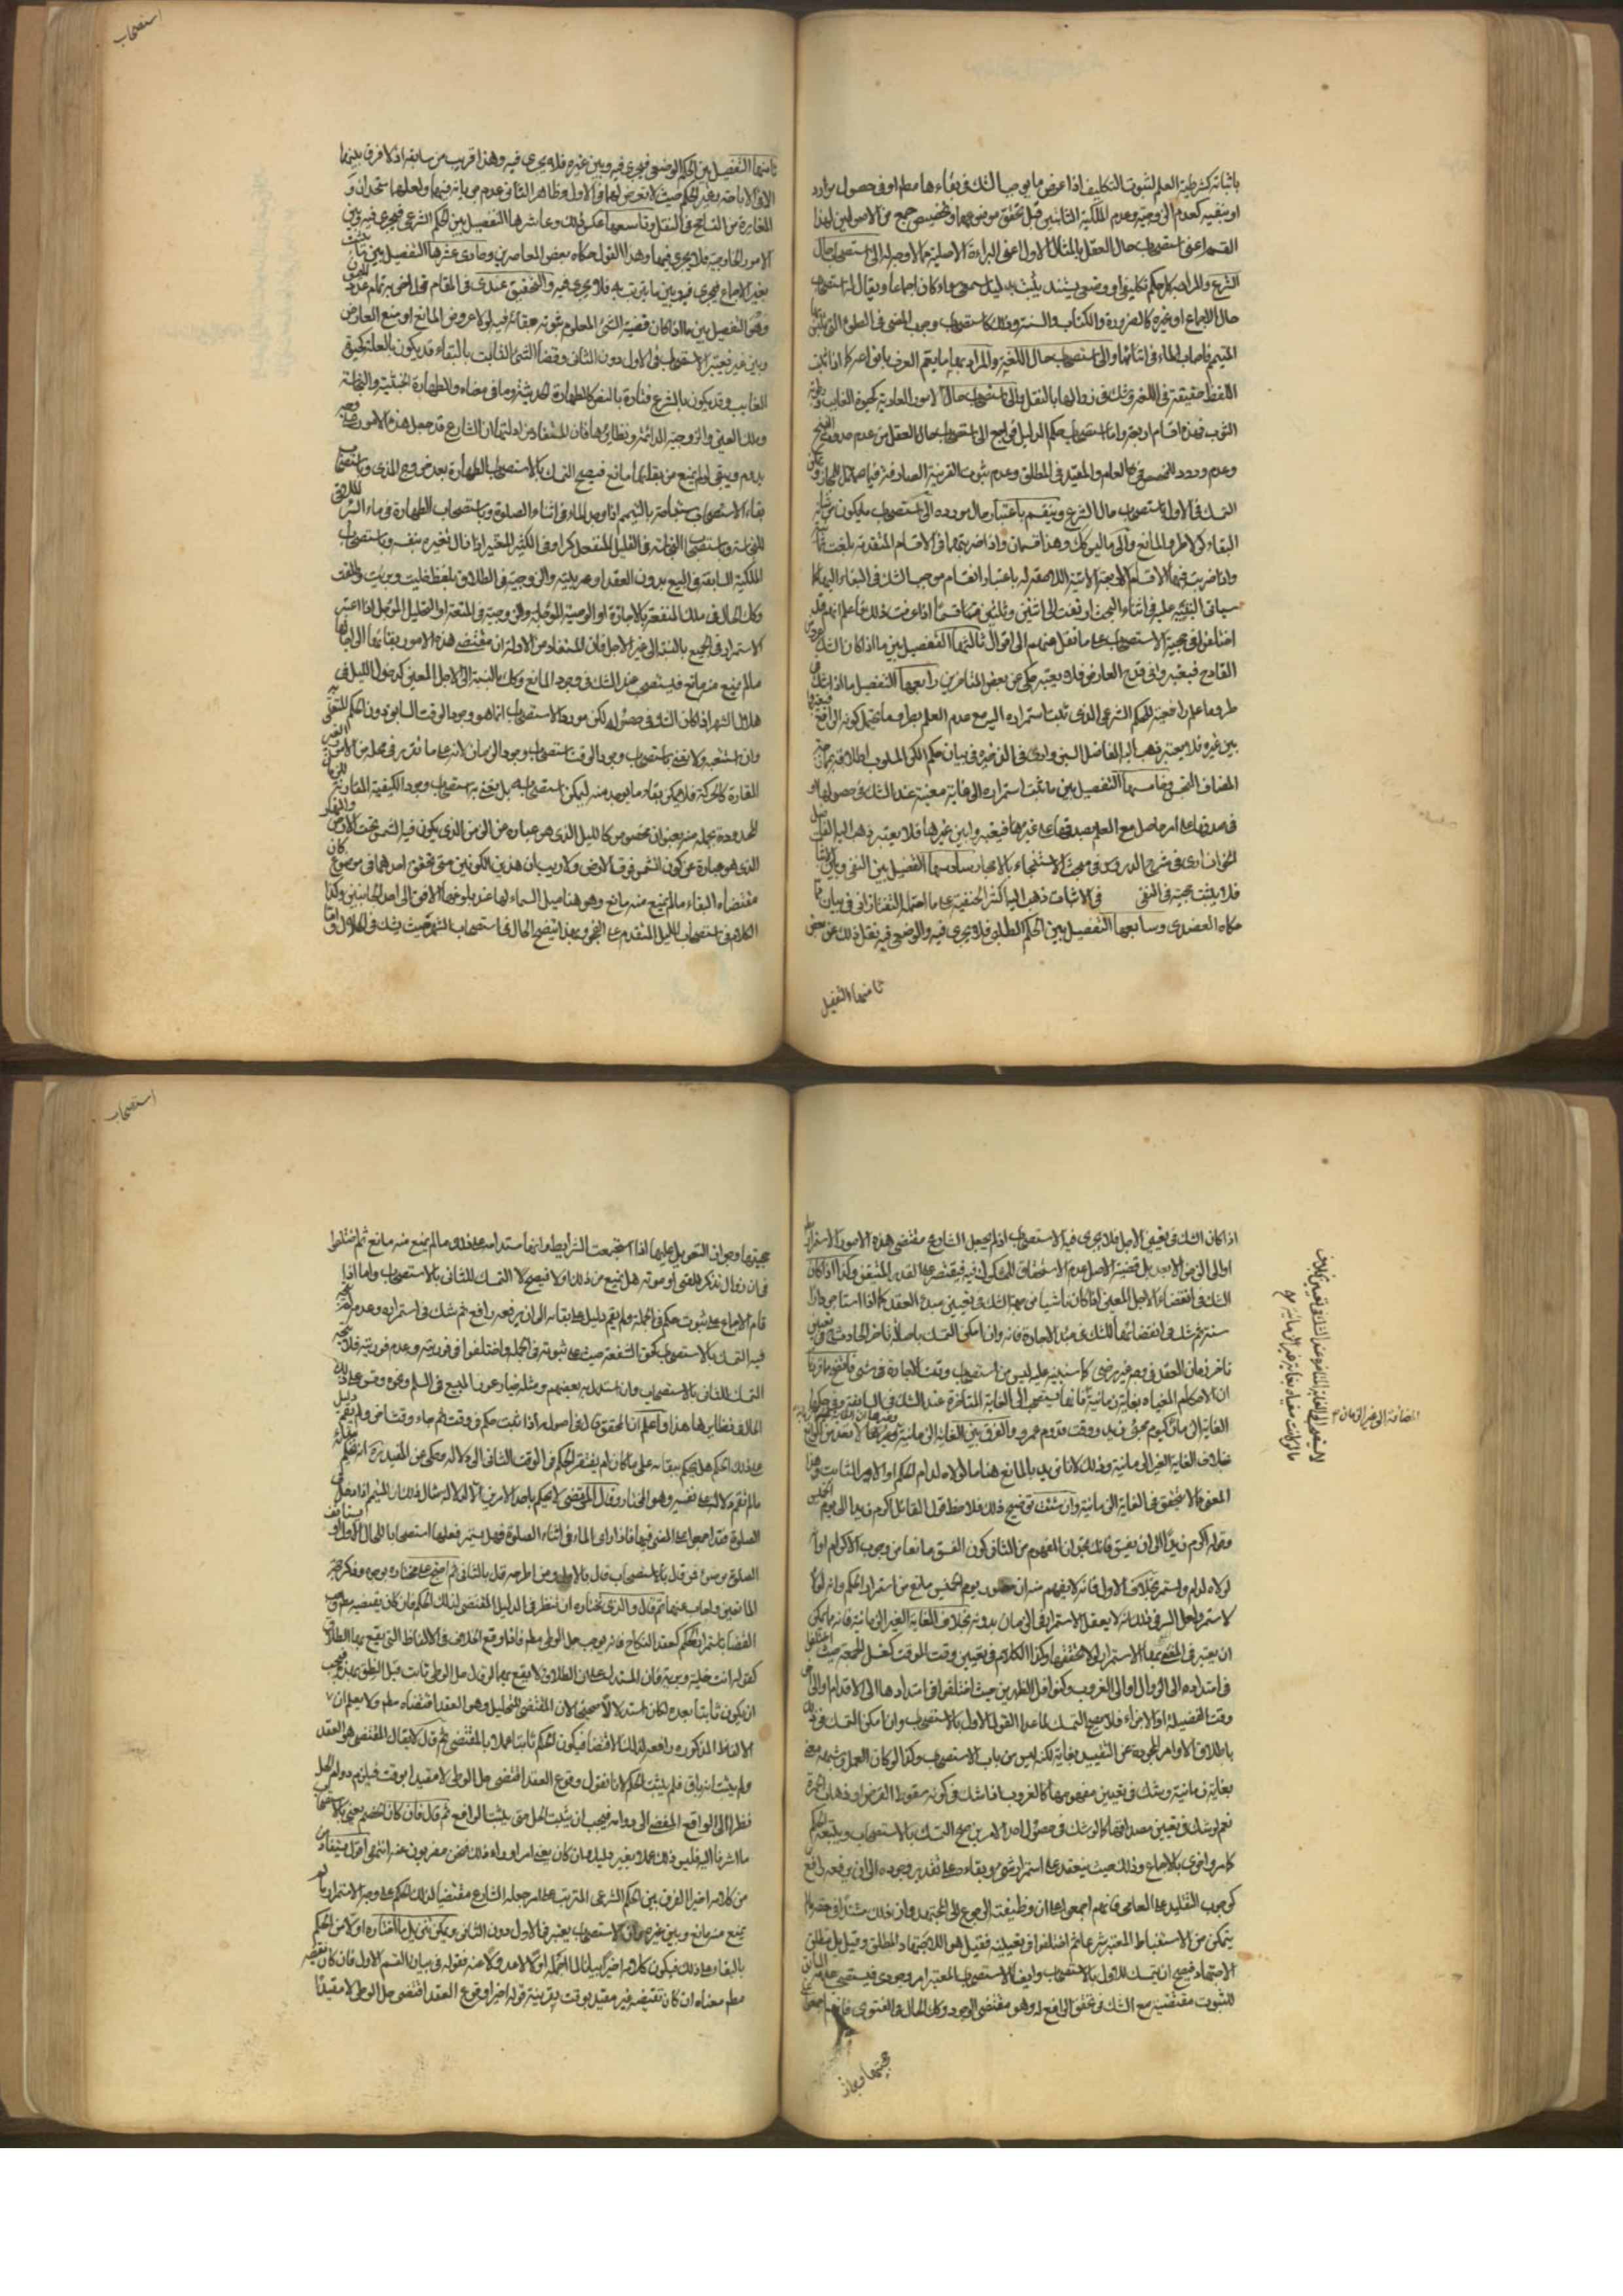 باثباته كشرطية العلم لثبوت التكليف اذا عرض ما يوجب الشك في بقاءها مطلقا او في حصول موارده
او بنفيه كعدم الزوجية وعدم الملكية الثابتين قبل تحقق موضوعهما وتخصيص جمع من الاصوليين لهذا
القسم اعني استصحاب حال العقل بالمثال الاول اعني البراءة الاصلية مما لا وجه له الى استصحاب حال
الشرع والمراد به كل حكم تكليفي او وضعي يستند ثبوته بدليل سمعي سواء كان اجماعا ويقال له استصحاب
حال الاجماع او غيره كالضرورة والكتاب والسنة وذلك كاستصحاب وجوب المضي في الصلوة
المتيمم فاصاب الماء في اثنائها والى استصحاب حال اللغة والمراد بها ما يعم العرف بانواعه كما اذا ثبت
اللفظ حقيقة في اللغة وشك في زوالها بالنقل والى استصحاب حال الامور العادية كحيوة الغايب
الثوب فهذه اقسام اربعة واما استصحاب حكم الدليل فراجع الى استصحاب حال العقل من عدم صدور
وعدم ورود المخصص في العام والمقيد في المطلق وعدم ثبوت القرينة الصارفة فيما
الشك في الاول استصحاب حال الشرع وينقسم باعتبار حال مورده الى استصحاب ما يكون من شانه
البقاء لولا طرو المانع والى ما ليس كك وهذا قسمان واذا ضربتهما في الاقسام المتقدمة بلغت ثمانية
واذا ضربت فيها الاقسام الاربعة الاتية اللاحقة له باعتبار انقسام موجب الشك في البقاء اليها كما
سياتي التنبيه عليه في اثناء البحث ارتفعت الى اثنين وثلثين قسما اذا عرفت ذلك فاعلم انهم قد
اختلفوا في حجية الاستصحاب على ما نقل عنهم الى اقوال ثالثها التفصيل بين ما اذا كان الشك
القادح فيعتبر وفي قدح العارض فلا يعتبر حكي عن بعض المتاخرين رابعها التفصيل ما اذا شك
طرو ما علم رافعيته للحكم الشرعي الذي ثبت استمراره اليه مع عدم العلم بطرو ما يحتمل كونه الرافع
بين غيره فلا يعتبر ذهب اليه الفاضل السبزواري في الذخيرة في بيان حكم الكر المسلوب اطلاقه
المضاف النجس وخامسها التفصيل بين ما ثبت استمراره الى غاية معينة عند الشك في حصولها
في صدقها على امر حاصل مع العلم بصدقها على غيرها فيعتبر وبين غيرها فلا يعتبر ذهب اليه الفاضل
الخوانساري في شرح الدروس في مبحث الاستنجاء بالاحجار سادسها التفصيل بين النفي وبين الاثبات
فلا يثبت حجية في النفي في الاثبات ذهب اليه اكثر الحنفية على ما احتمله التفتازاني في بيان ما
حكاه العضدي وسابعها التفصيل بين الحكم الطلبي فلا يجري فيه والوضعي فيه نقل ذلك عن بعض
ثامنها التفصيل
استصحاب
ثامنها التفصيل بين الحكم الوضعي فيجري فيه وبين غيره فلا يجري فيه وهذا قريب من سابقه اذ لا فرق بينهما
الا في الاباحة وغير الحكم حيث لا تعرض لهما في الاول وظاهر الثاني عدم جريانه فيهما ولعلهما متحدان و
المغايرة من التسامح في النقل وتاسعها عكس ذلك وعاشرها التفصيل بين الحكم الشرعي فيجري فيه وبين
الامور الخارجية فلا يجري فيها وهذا القول حكاه بعض المعاصرين وحادي عشرها التفصيل بين ما ثبت
بغير الاجماع فيجري فيه وبين ما يثبت به فلا يجري فيه والتحقيق عندي في المقام قول اخر
وهو التفصيل بين ما اذا كان قضية الشئ المعلوم ثبوته بقائه فيه لولا عروض المانع او منع العارض
وبين غيره فيعتبر الاستصحاب في الاول دون الثاني وقضاء الشئ الثابت بالبقاء قد يكون بالعلة كحيوة
الغايب وقد يكون بالشرع فتارة بالنص كالطهارة الحدثية وما في معناه والطهارة الخبثية والنجاسة
وملك العين والزوجية الدائمة ونظائرها فان المستفاد من ادلتها ان الشارع قد جعل هذه الامور على وجه
يدوم ويبقى لو لم يمنع من بقائها مانع فيصح التمسك بالاستصحاب الطهارة بعد خروج المذي واستصحاب
بقاء الاستصحاب مثبتا حته بالتيمم اذا وجد الماء في اثناء الصلوة واستصحاب الطهارة في ماء البئر الملاقي
للنجاسة واستصحاب النجاسة في القليل المتمم كرا وفي الكثير المتغير اذا زال تغيره بنفسه واستصحاب
الملكية السابقة في البيع بدون العقد او معاطاته والزوجية في الطلاق بلفظ خلية وبرية والحق
وكك الحال في ملك المنفعة بالاجارة او الوصية المؤجلة والزوجية في المتعة او التحليل المؤجل اذا اعتبر
الاستمرار في الجميع بالنسبة الى غير الاجل فان المستفاد من الادلة ان مقتضى هذه الامور بقائها الى اجالها
ما لم يمنع منه مانع فيستصحب عند الشك في وجود المانع وكك بالنسبة الى الاجل المعين كدخول الليل في
هلال الشهر اذا كان الشك في حصوله لكن مورد الاستصحاب انما هو وجود الوقت السابق دون الحكم المتعلق به
القارة كالحركة فلا يمكن بقاء ما يوجد منه ليمكن استصحابه بل نعني به استصحاب وجود الكيفية المقارنة
المحدودة بجملة منه بعنوان مخصوص كالليل الذي هو عبارة عن الزمن الذي يكون فيه الشمس تحت الارض والنهار
الذي هو عبارة عن كون الشمس فوق الارض ولا ريب ان هذين الكونين متى تحقق احدهما في موضوع كان
مقتضاه البقاء ما لم يمنع منه مانع وهو هنا ميل السماء لها عند بلوغها الافق الى احد الجانبين وكذا
الكلام في استصحاب الليل المتقدم على الفجر وبهذا يتضح الحال في استصحاب الشهر حيث يشك في الهلال
اذا كان الشك في تعيين الاجل فلا يجري فيه الاستصحاب اذ لم يجعل الشارع مقتضى هذه الامور الاستمرار
او الى الزمن الابعد بل قضية الاصل عدم الاستحقاق للمشكوك فيه فيقتصر على القدر المتيقن وكذا اذا كان
الشك في انقضاء الاجل المعين اذا كان ناشيا من جهة الشك في تعيين مبدء العقد كما اذا استاجر دارا
سنة ثم شك في انقضائها للشك في مبدء الاجارة فانه وان امكن التمسك باصالة تاخر الحادث في تعيين
تاخر زمان العقد في وجه غير مرضي كما سننبه عليه ليس من استصحاب وقت الاجارة في شئ فاتضح مما قررنا
ان الاحكام المغياة بغاية زمانية فانها تستصحب الى الغاية المتاخرة عند الشك في السابقة وفي حكمها
الغاية الزمانية كيوم مجئ زيد ووقت قدوم عمرو والفرق بين الغاية الزمانية وغيرها
بخلاف الغاية الغير الزمانية وذلك لانا نريد بالمانع هنا ما لولاه لدام الحكم او الامر الثابت وهذا
المعنى مما لا يتحقق في الغاية الزمانية وان شئت توضيح ذلك فلاحظ قول القائل اكرم زيدا الى يوم الخميس
وقوله اكرم زيدا الى ان يفسق فانك تجد ان المفهوم من الثاني كون الفسق مانعا من وجوب الاكرام اذ
لولاه لدام واستمر بخلاف الاول فانه لا يفهم منه ان حصول يوم الخميس مانع من استمرار الحكم وانه لولا
لاستمر ولعل السر في ذلك انه لا يعقل الاستمرار في الزمان بدونه بخلاف الغاية الغير الزمانية فانه ما يمكن
ان يعتبر في المغيى بها الاستمرار لولا تحققها وكذا الكلام في تعيين وقت الموقت كغسل الجمعة حيث اختلفوا
في امتداده الى الزوال او الى الغروب وكنوافل الظهرين حيث اختلفوا في امتدادها الى الاقدام او الى اخر
وقت الفضيلة او الاجزاء فلا يصح التمسك بما عدا القول الاول بالاستصحاب وان امكن التمسك في ذلك
باطلاق الاوامر المجردة عن التقييد بغاية لكنه ليس من باب الاستصحاب وكذا لو كان العمل
بغاية زمانية وشك في تعيين مفهومها كالغروب اذا شك في كونه سقوط القرص او ذهاب الحمرة
نعم لو شك في تعيين مصداقها كما لو شك في حصول احد الامرين صح التمسك بالاستصحاب ويتبعه الحكم
كما مر واخرى بالاجماع وذلك حيث ينعقد على استمرار شئ وبقاءه على تقدير وجوده الى ان يرفعه رافع
كوجوب التقليد على العامي فانهم اجمعوا على ان وظيفته الرجوع الى المجتهد وان ذلك مستمر الى حضوره
يتمكن من الاستنباط المعتبر شرعا ثم اختلفوا في تعيينه فقيل هو الاجتهاد المطلق وقيل بل مطلق
الاجتهاد فيصح ان يتمسك للاول بالاستصحاب وايضا الاستصحاب المعتبر امر وجودي فيستصحب
للثبوت مقتضيه مع الشك في تحقق الرافع له وهو مقتضى الوجود وكك الحال في الفتوى فانهم اجمعوا
حجيتها وجواز
استصحاب
حجيتها وجواز التعويل عليها اذا استجمعت الشرايط وانها مستدامة على ما لم يمنع منه مانع ثم اختلفوا
في ان زوال تذكر المفتي او موته هل يمنع من ذلك اولا فيصح التمسك للثاني بالاستصحاب واما اذا
قام الاجماع على ثبوت حكم في الجملة ولم يقم دليل على بقائه الى ان يرفعه رافع ثم شك في استمراره وعدمه لم يتجه
فيه التمسك بالاستصحاب كحق الشفعة حيث على ثبوته في الجملة واختلفوا في فوريته وعدم فوريته فلا يتجه
التمسك للثاني بالاستصحاب وان استدل به بعضهم ومثله خيار عدم المبيع في السلم ونحوه وقس على ذلك
الحال في نظايرها هذا واعلم ان المحقق قال في اصوله اذا ثبت حكم في وقت ثم جاء وقت اخر ولم يقم دليل
على ذلك الحكم هل يحكم ببقائه على ما كان ام يفتقر الحكم في الوقت الثاني الى دلالة وحكي عن المفيد ره انه يحكم ببقائه
ما لم تقم دلالة على نفيه وهو المختار وقال المرتضى لا يحكم باحد الامرين الا لدلالة مثال ذلك ان المتيمم اذا دخل في
الصلوة فقد اجمعوا على المضي فيها فاذا رأى الماء في اثناء الصلوة فهل يستمر فعلها استصحابا للحال الاول او يستانف
الصلوة بوضوء فمن قال بالاستصحاب قال بالاول ومن اطرحه قال بالثاني ثم احتج على مختاره بوجوه وذكر حجة
المانعين واجاب عنها ثم قال والذي نختاره ان ننظر في الدليل المقتضي لذلك الحكم فان كان يقتضيه مطلقا وجب
القضاء باستمرار الحكم كعقد النكاح فانه يوجب حل الوطي مطلقا فاذا وقع الخلاف في الالفاظ التي يقع بها الطلاق
كقوله انت خلية وبرية فان المستدل على ان الطلاق لا يقع بها لو قال حل الوطي ثابت قبل النطق بهذه فيجب
ان يكون ثابتا بعده لكان استدلالا صحيحا لان المقتضي للتحليل وهو العقد اقتضاه مطلقا ولا يعلم ان
الالفاظ المذكورة رافعة لذلك الاقتضاء فيكون الحكم ثابتا عملا بالمقتضي ثم قال لا يقال المقتضي هو العقد
ولم يثبت انه باق فلم يثبت الحكم لانا نقول وقوع العقد اقتضى حل الوطي لا مقيدا بوقت فيلزم دوام الحل
نظرا الى وقوع المقتضي الى دوامه فيجب ان يثبت الحل حتى يثبت الرافع ثم قال فان كان الخصم يعني بالاستصحاب
ما اشرنا اليه فليس ذلك عملا بغير دليل وان كان يعني امرا وراء ذلك فنحن مضربون عنه انتهى اقول مستفاد
من كلامه اخيرا الفرق بين الحكم الشرعي المترتب على امر جعله الشارع مقتضيا لذلك الحكم على وجه الاستمرار ما لم
يمنع منه مانع وبين غيره وان الاستصحاب يعتبر في الاول دون الثاني ويمكن تنزيل ما اختاره اولا من الحكم
بالبقاء على ذلك فيكون كلامه اخيرا بيانا لما اجمله اولا لا عدولا عنه فقوله في بيان القسم الاول فان كان يقتضيه
مطلقا معناه ان كان يقتضيه غير مقيد بوقت بقرينة قوله اخيرا وقوع العقد اقتضى حل الوطي لا مقيدا